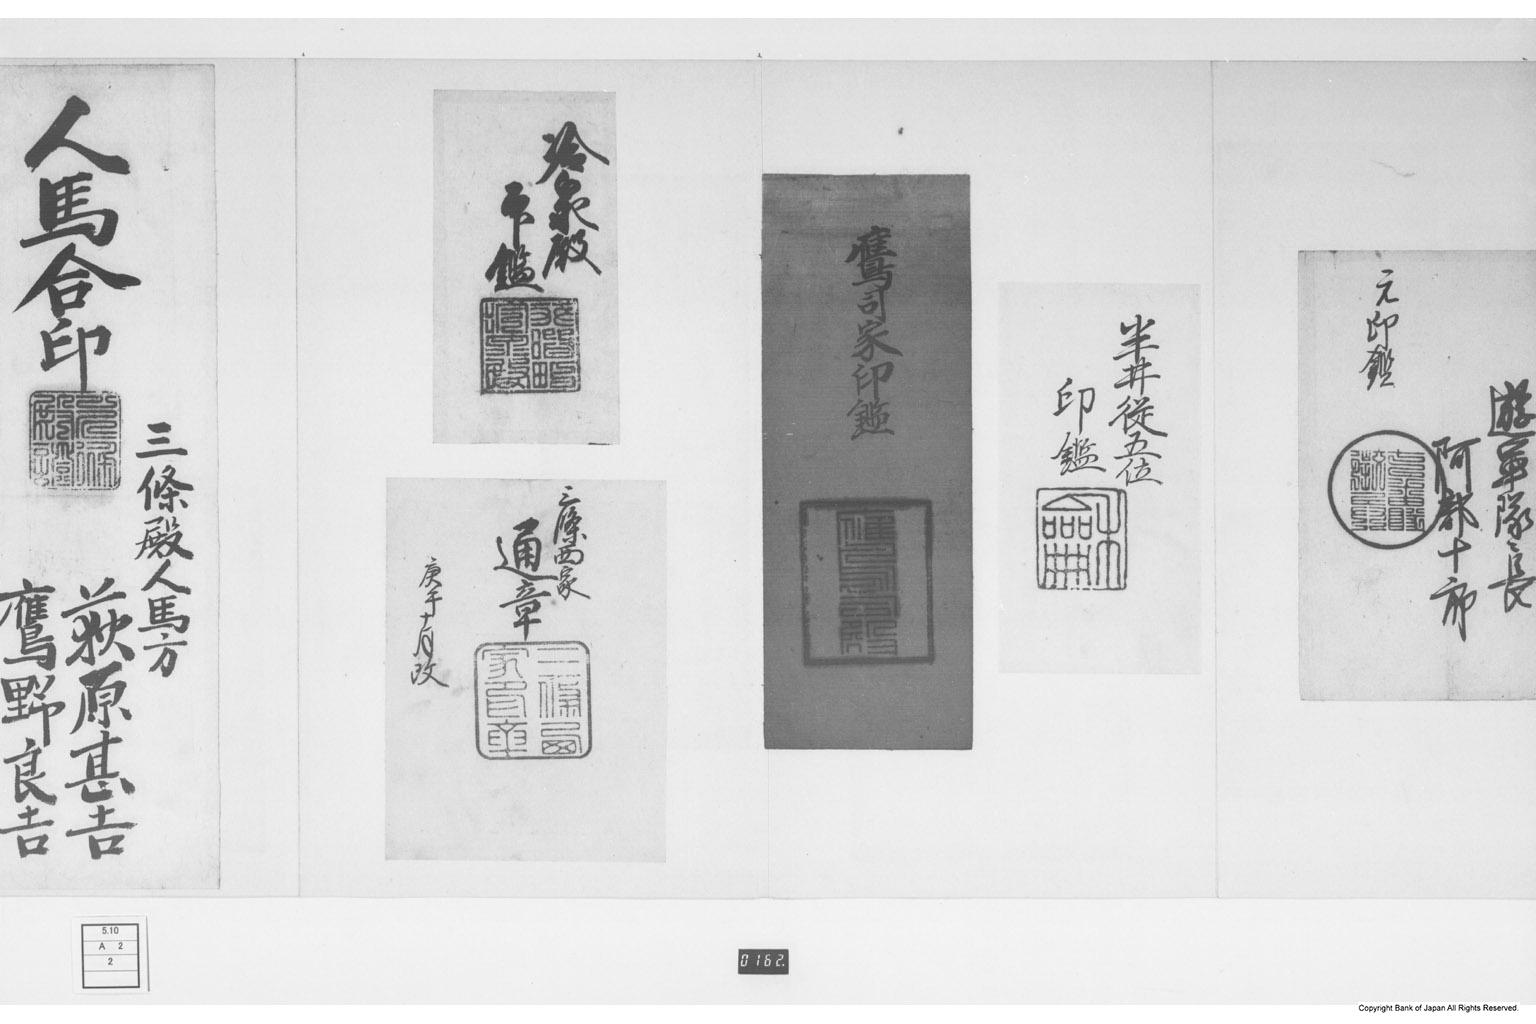 遊軍隊々長
阿部十郎
元印鑑
半井従五位
印鑑
鷹司家印鑑
冷泉殿
印鑑
三條西家
通章
庚午十月改
三條西
家印章
人馬合印
三條殿人馬方
荻原甚吉
鷹野良吉
5.10
A 2
2
0162.
Copyright Bank of Japan All Rights Reserved.